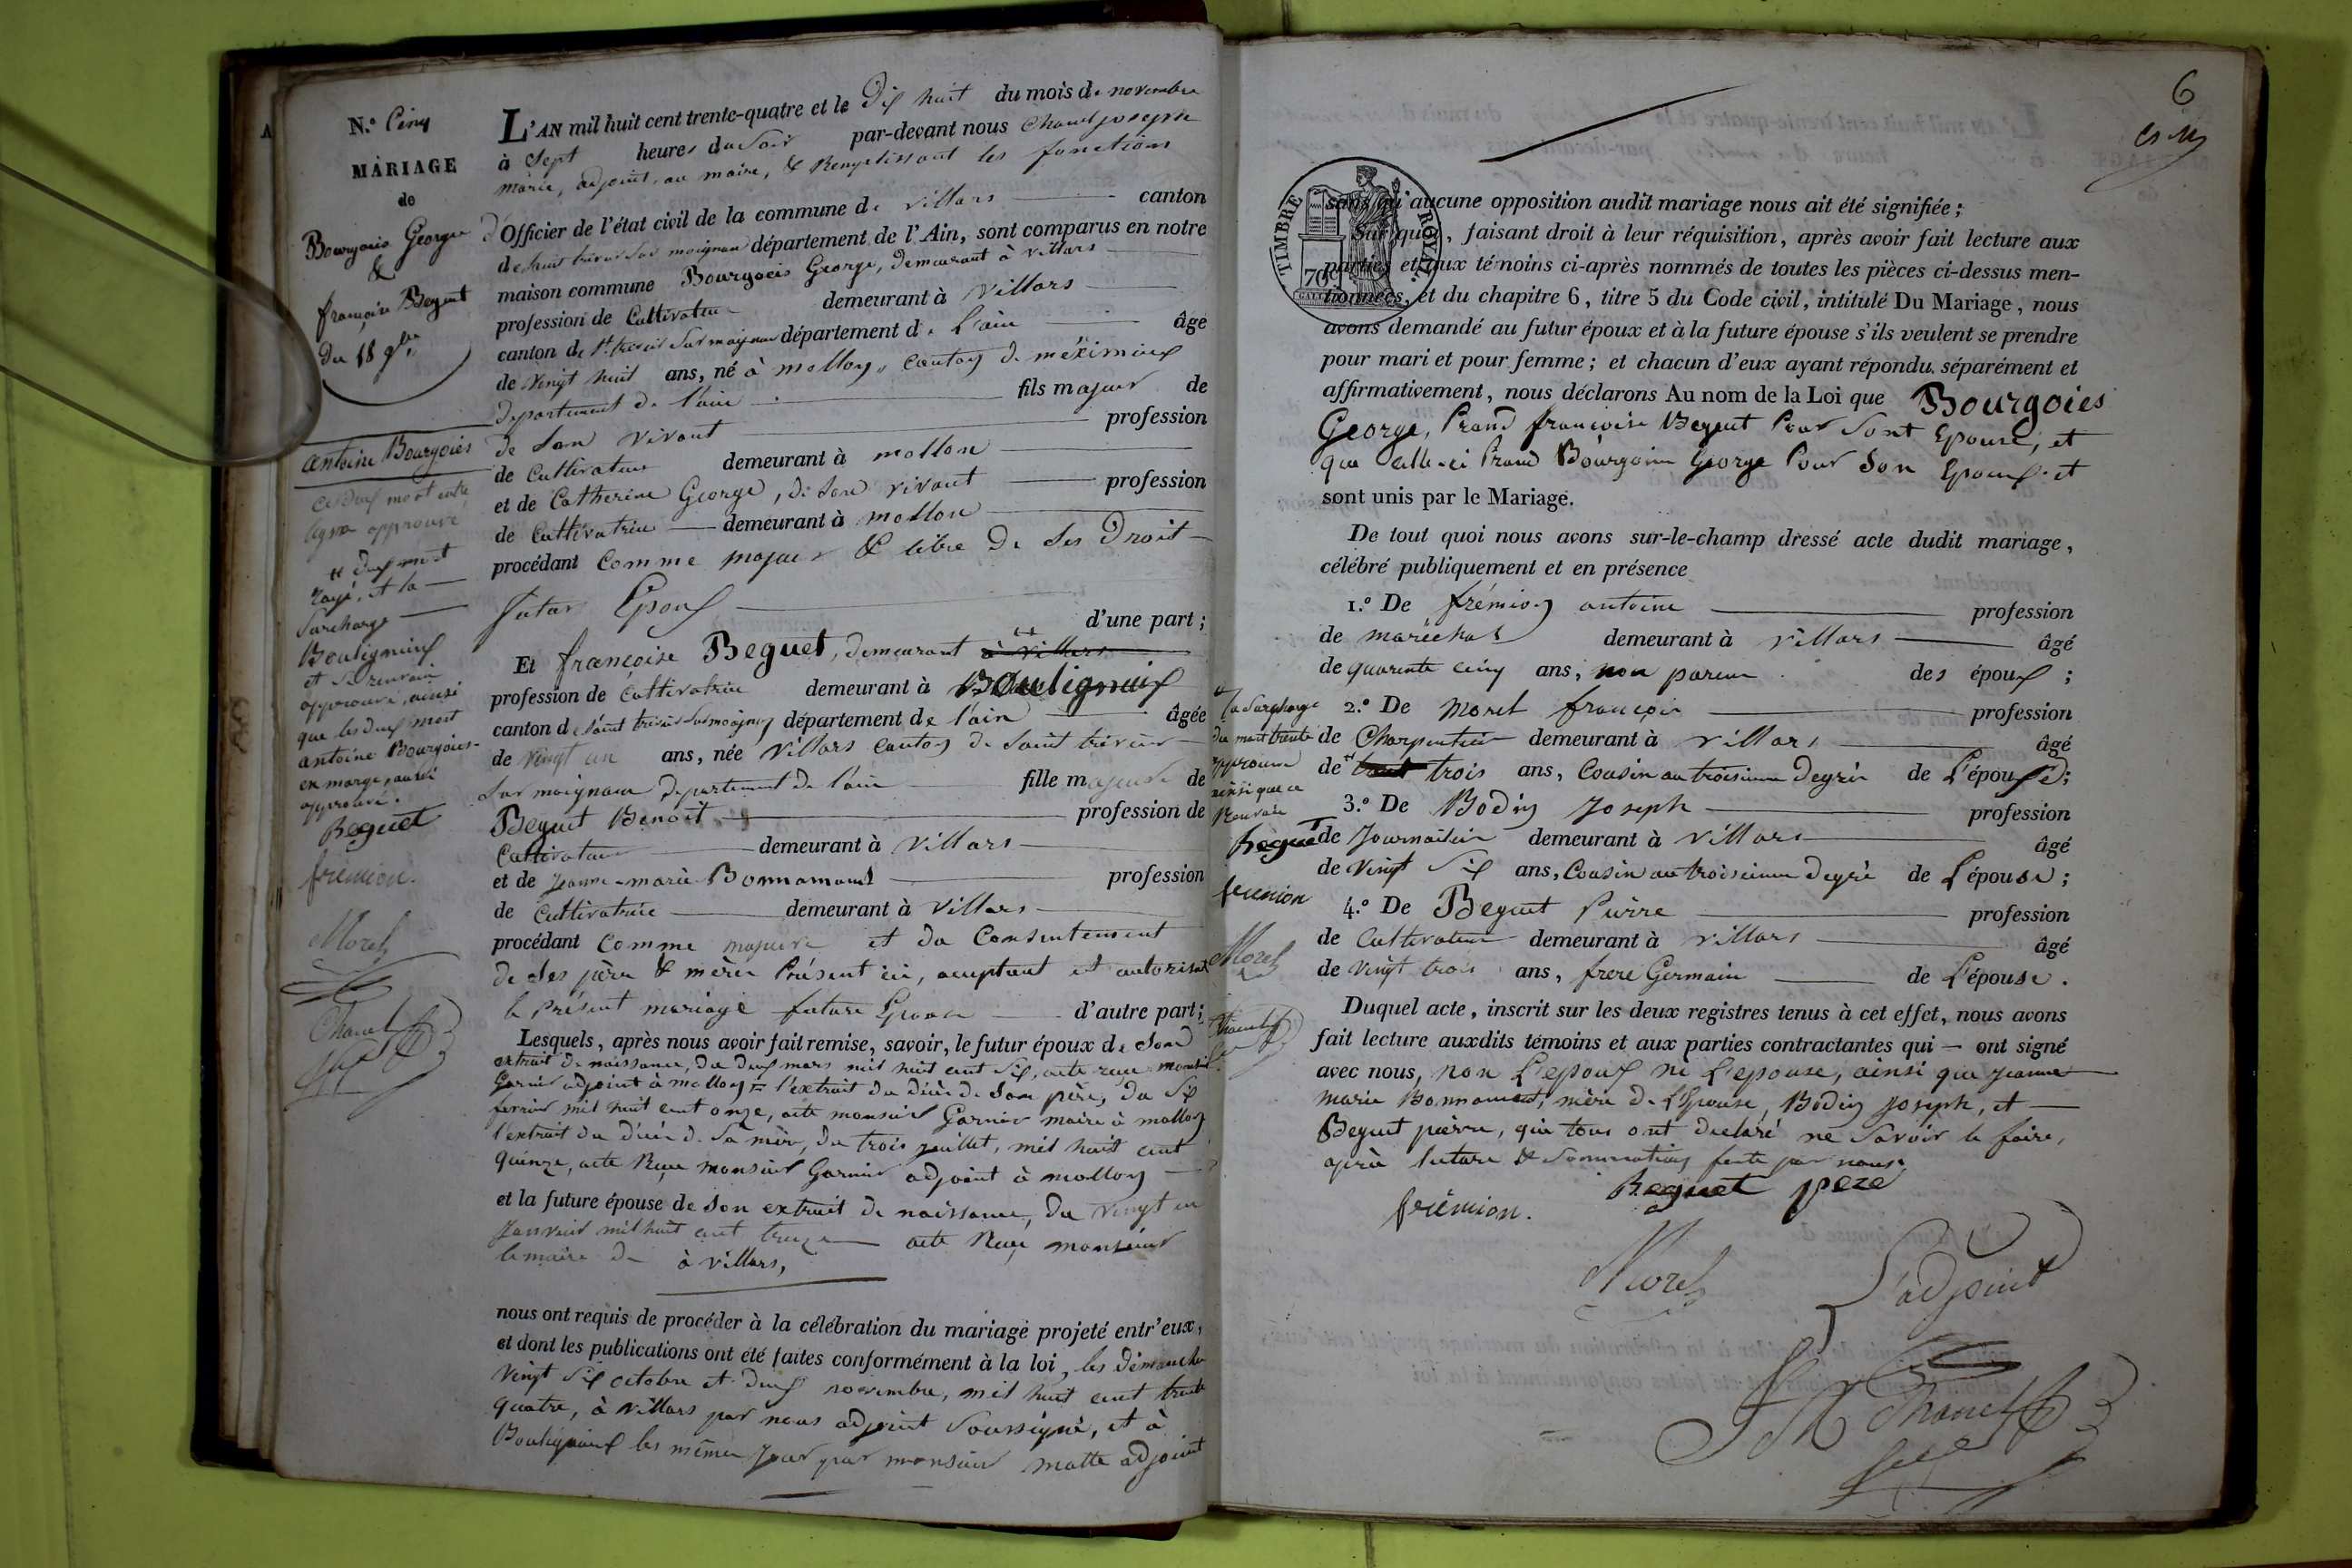 N.o Cinq
MARIAGE
de
Bourgois George
&
françoise Beguet
du 18 9bre
antoine Bourgoies
ces deux mots entre
ligne approuvé
deux mot
rayé, et la
Surcharge
Bouligneux
et Le renvoi
approuvé, ainsi
que les deux mots
antoine Bourgoies
en marge, aussi
approuvé.
Beguet
frémion.
Morel
Chanel
L'AN mil huit cent trente-quatre et le Dix huit du mois de novembre
à Sept heures du Soir par-devant nous Chanel joseph
marie, adjoint au maire, & Remplissant les fonctions
d'Officier de l'état civil de la commune de villars canton
de Saint trivier Sur moignan département de l'Ain, sont comparus en notre
maison commune Bourgoies George, demeurant à villars
profession de Cultivateur demeurant à Villars
canton de St. trivier Sur moignan département de L'ain âgé
de Vingt huit ans, né à mollon, canton de méximieux
département de l'ain fils majeur de
de Son vivant profession
de Cultivateur demeurant à mollon
et de Catherine George, de Son vivant profession
de Cultivatrice demeurant à mollon
procédant Comme majeur & libre De Ses Droit
futur Epoux d'une part;
Et françoise Beguet, demeurant à Villars
profession de Cultivatrice demeurant à Bouligneux
canton de Saint trivier Sur moignan département de l'ain âgée
de Vingt un ans, née Villars canton de Saint trivier
Sur moignan département de l'ain fille majeure de
Beguet Benoit profession de
Cultivateur demeurant à Villars
et de jeanne-marie Bonnamour profession
de Cultivatrice demeurant à Villars
procédant Comme majeure et du Consentement
de Ses père & mère Présent ici, acceptant et autorisant
le Présent mariage future Epouse d'autre part;
Lesquels, après nous avoir fait remise, savoir, le futur époux de Son
extrait de naissance, du deux mars mil huit cent Six, acte reçu monsieur
Garnier adjoint à mollon = l'extrait du décès de Son père, du Six
fevrier mil huit cent onze, acte monsieur Garnier maire à mollon
l'extrait du décès de Sa mère, du trois juillet, mil huit cent
quinze, acte Reçu monsieur Garnier adjoint à mollon
et la future épouse de Son extrait de naissance, du Vingt un
Janvier mil huit cent treize acte Reçu monsieur
le maire de à villars,
nous ont requis de procéder à la célébration du mariage projeté entr'eux,
et dont les publications ont été faites conformément à la loi, les dimanche
Vingt Six octobre et deux novembre, mil huit cent trente
quatre, à Villars par nous adjoint Soussigné, et à
Bouligneux les mêmes Jour par monsieur matte adjoint
6
TIMBRE ROYAL
70c
sans qu'aucune opposition audit mariage nous ait été signifiée;
Sur quoi, faisant droit à leur réquisition, après avoir fait lecture aux
parties et aux témoins ci-après nommés de toutes les pièces ci-dessus men-
tionnées, et du chapitre 6, titre 5 du Code civil, intitulé Du Mariage, nous
avons demandé au futur époux et à la future épouse s'ils veulent se prendre
pour mari et pour femme; et chacun d'eux ayant répondu séparément et
affirmativement, nous déclarons Au nom de la Loi que Bourgoies
George, Prend françoise Beguet Pour Sont Epouse, et
que Celle-ci Prend Bourgoies George Pour Son Epoux et
sont unis par le Mariage.
De tout quoi nous avons sur-le-champ dressé acte dudit mariage,
célébré publiquement et en présence
1.o De frémion antoine profession
de maréchal demeurant à villars âgé
de quarente cinq ans, non parent des époux;
2.o De Morel françois profession
de Charpentier demeurant à villars âgé
de trois ans, Cousin au troisième Degrés de L'épouse;
3.o De Bodin Joseph profession
de Journalier demeurant à villars âgé
de Vingt Six ans, Cousin au troisième Degré de L'épouse;
4.o De Beguet Pierre profession
de Cultivateur demeurant à villars âgé
de vingt trois ans, frere Germain de L'épouse.
La Surcharge
du mot trente
approuvé
ainsi que ce
Renvoi
Beguet
fremion
Morel
Chanel
Duquel acte, inscrit sur les deux registres tenus à cet effet, nous avons
fait lecture auxdits témoins et aux parties contractantes qui — ont signé
avec nous, non L'epoux ni L'epouse, ainsi que jeanne
marie Bonnamour, mère de L'Epouse, Bodin Joseph, et
Beguet pierre, qui tous ont déclaré ne Savoir le faire,
après lecture & Sommation faite par nous.
frémion. Beguet pere
Morel L'adjoint
JM Chanel